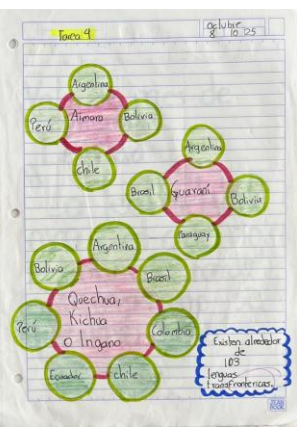 Tarea 4
Octubre
8 10 25
Argentina
Perú
Aimara
Bolivia
chile
Argentina
Brasil
Guaraní
Bolivia
Paraguay
Argentina
Bolivia
Brasil
Quechua,
Kichua
O Ingano
Perú
Colombia
Ecuador
chile
Existen alrededor
de
103
lenguas
transfronterizas.